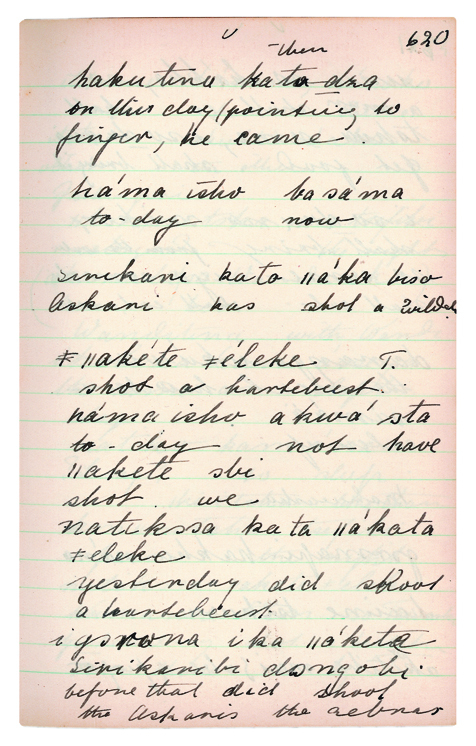 620
then
hakutina kata dza
on this day (pointing to
finger, he came.
háma isho basáma
to-day now
sirikani kato ǁáka biso
Askani has shot a Wildeb
ǂǁakéte ǂéleke T.
shot a hartebeest.
náma isho akwá sta
to-day not have
ǁakete sbi
shot we
natikssa kata ǁákata
ǂeleke
yesterday did shoot
a hartebeest
ika ǁáketa
Sirikaribi dongobi.
before that did shoot
the Askaris the zebras